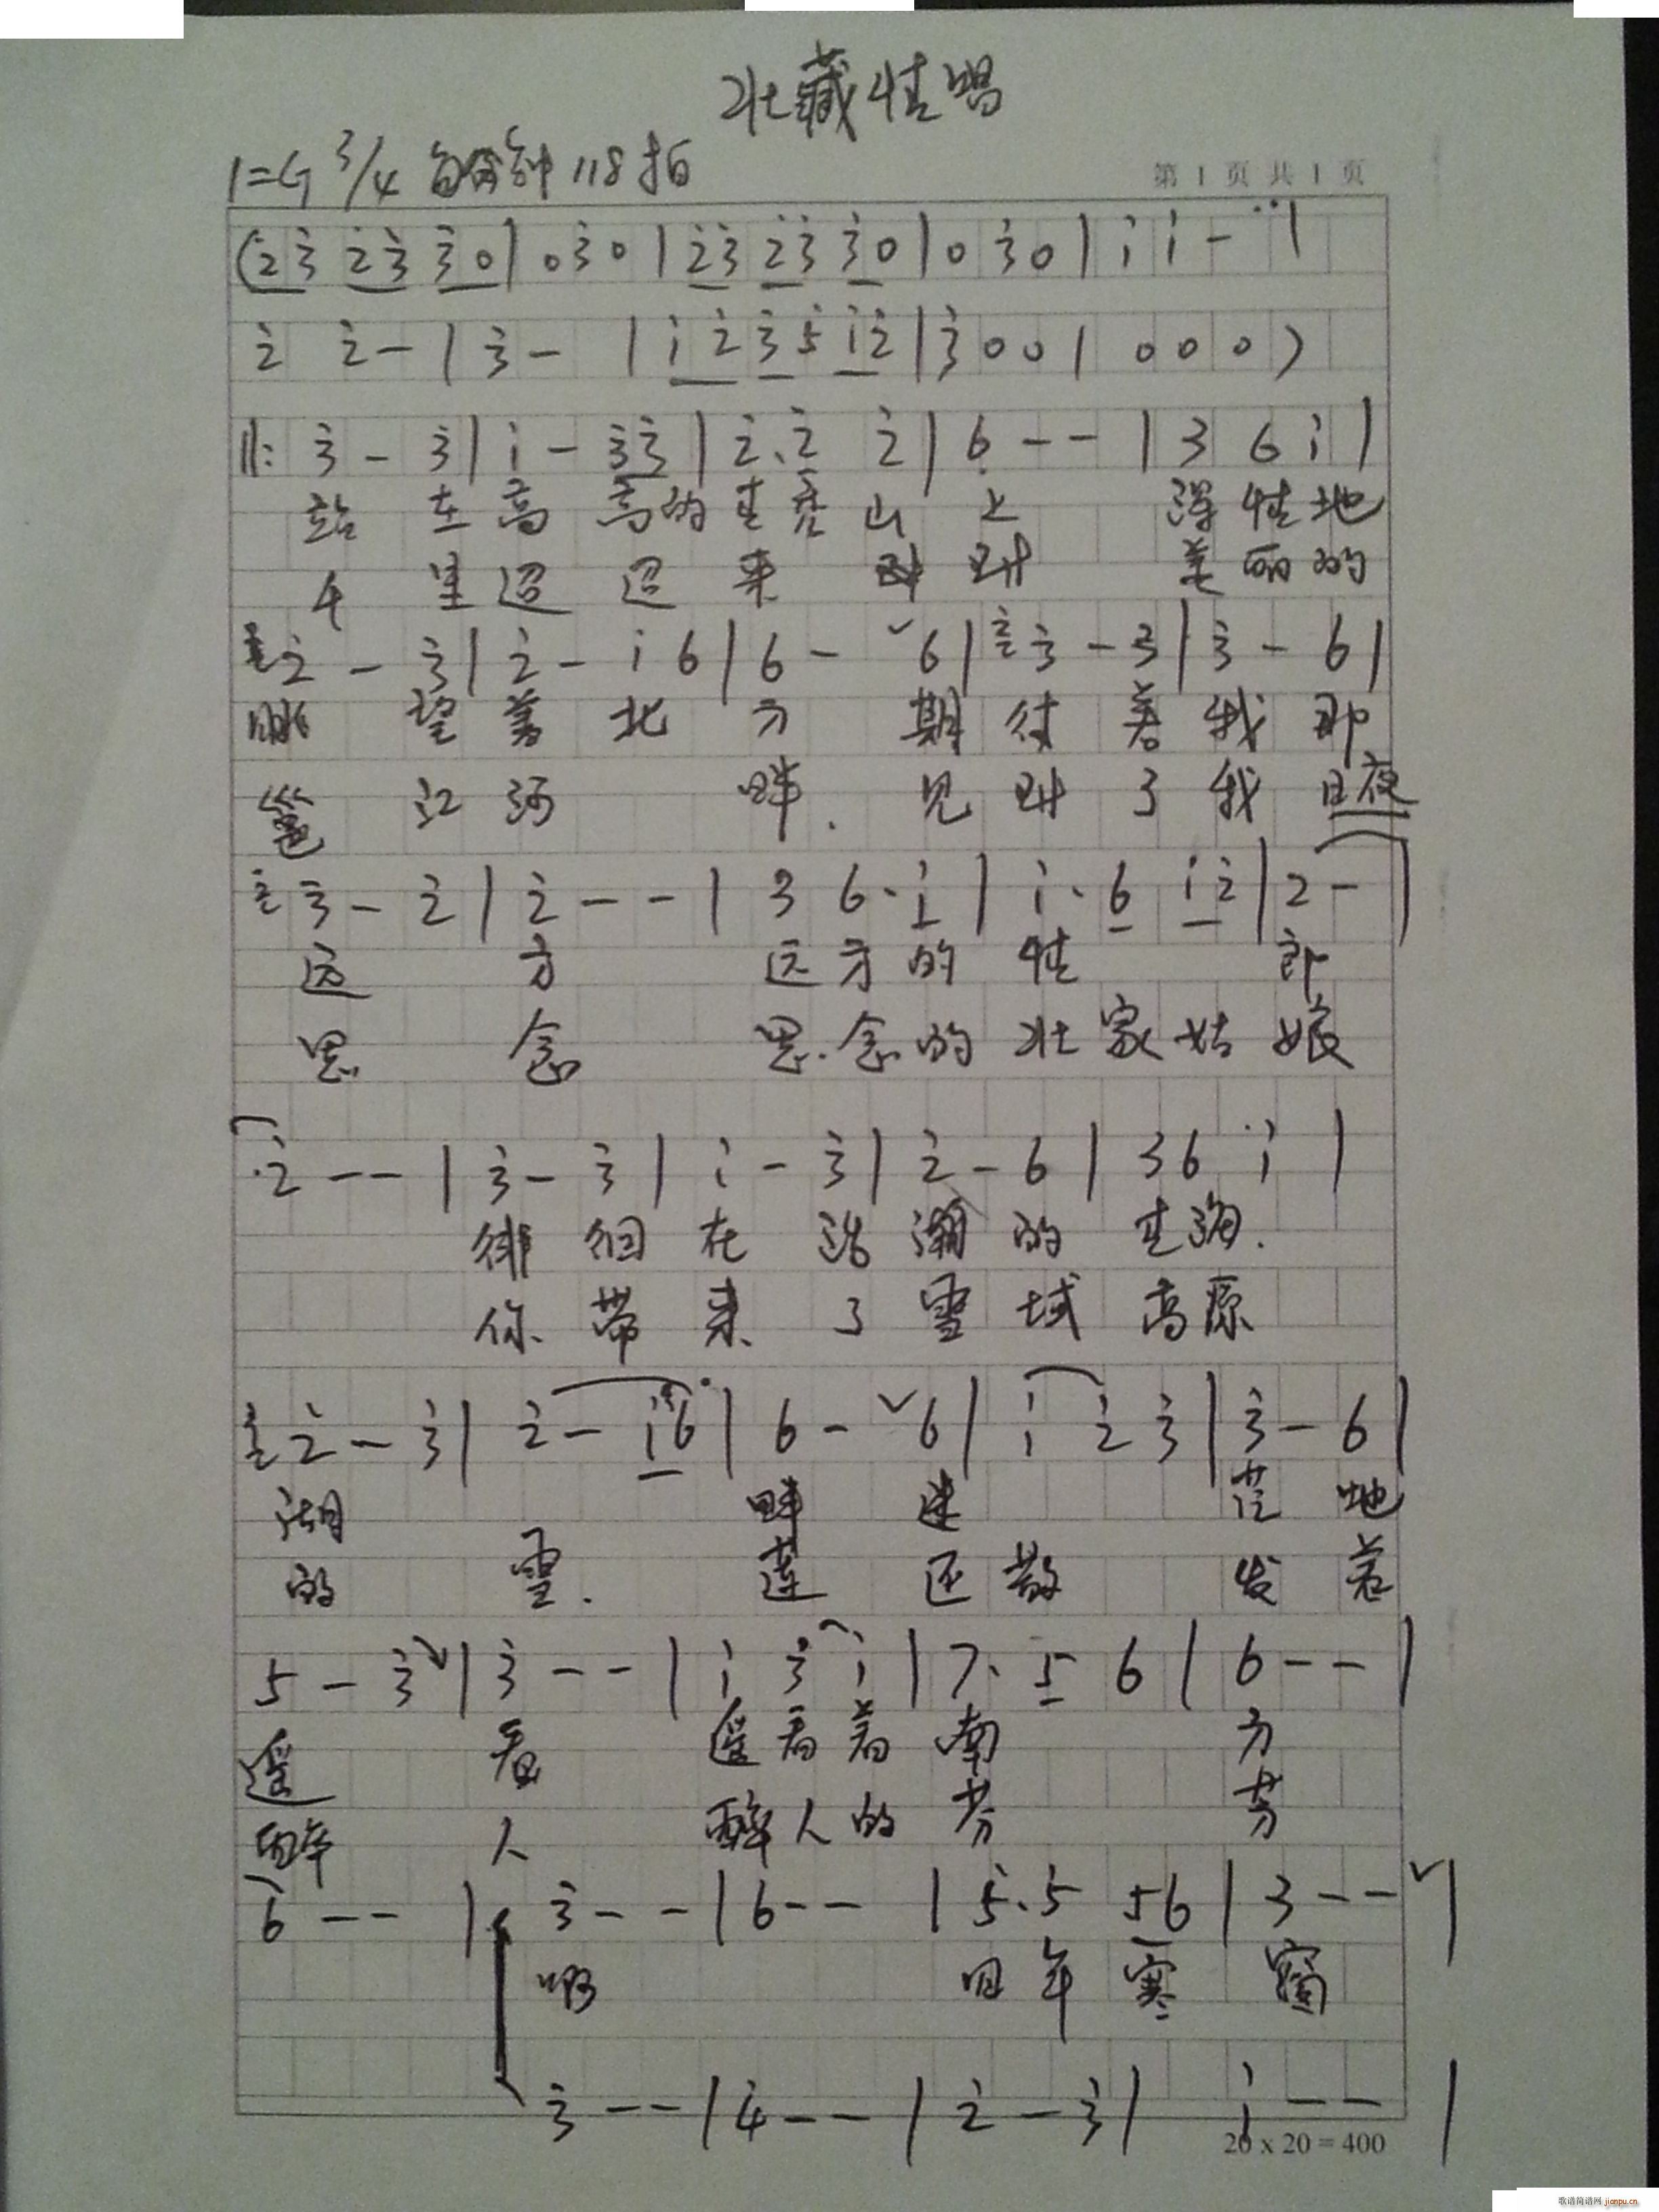 壮藏情唱
1=G 3/4 每分钟118拍
第 1 页 共 1 页
(2̇3̇ 2̇3̇ 3̇0|03̇0|2̇3̇ 2̇3̇ 3̇0|03̇0|1̇ 1̇ -|
2̇ 2̇ -|3̇ -|1̇2̇ 3̇5 1̇2̇|3̇00|000)
||: 3̇ - 3̇|1̇ - 3̇3̇|2̇.2̇ 2̇|6 - -|3 6 1̇|
站 在 高 高的 圭 秀 山 上 深 情 地
千 里 迢 迢 来 到 美 丽 的
2̇ - 3̇|2̇ - 1̇ 6|6 - ˅6|3̇ - 3|3̇ - 6|
眺 望 着 北 方 期 待 着 我 那
邕 江 河 畔. 见 到 了 我 日夜
3̇ - 2|2̇ - -|3 6.1̇|1̇.6 1̇2̇|2 -|
远 方 远 方 的 情 郎
思 念 思 念 的 壮 家 姑 娘
2̇ - -|3̇ - 3̇|1̇ - 3̇|2̇ - 6|36 1̇|
徘 徊 在 浩 瀚 的
你 带 来 了 雪 域 高 原
2̇ - 3̇|2̇ - 1̇6|6 - ˅6|1̇ 2̇ 3̇|3̇ - 6|
湖 畔 迷 茫 地
的 雪. 莲 还 散 发 着
5 - 3̇|3̇ - -|1̇ 3̇ 1̇|7.5 6|6 - -|
遥 看 遥 看 着 南 方
醉 人 醉 人 的 芬 芳
6 - -|3̇ - -|6 - -|5.5 56|3 - - ˅|
啊 年 寒 窗
3̇ - -|4̇ - -|2̇ - 3̇|1̇ - -|
20 x 20 = 400
歌谱简谱网 jianpu.cn